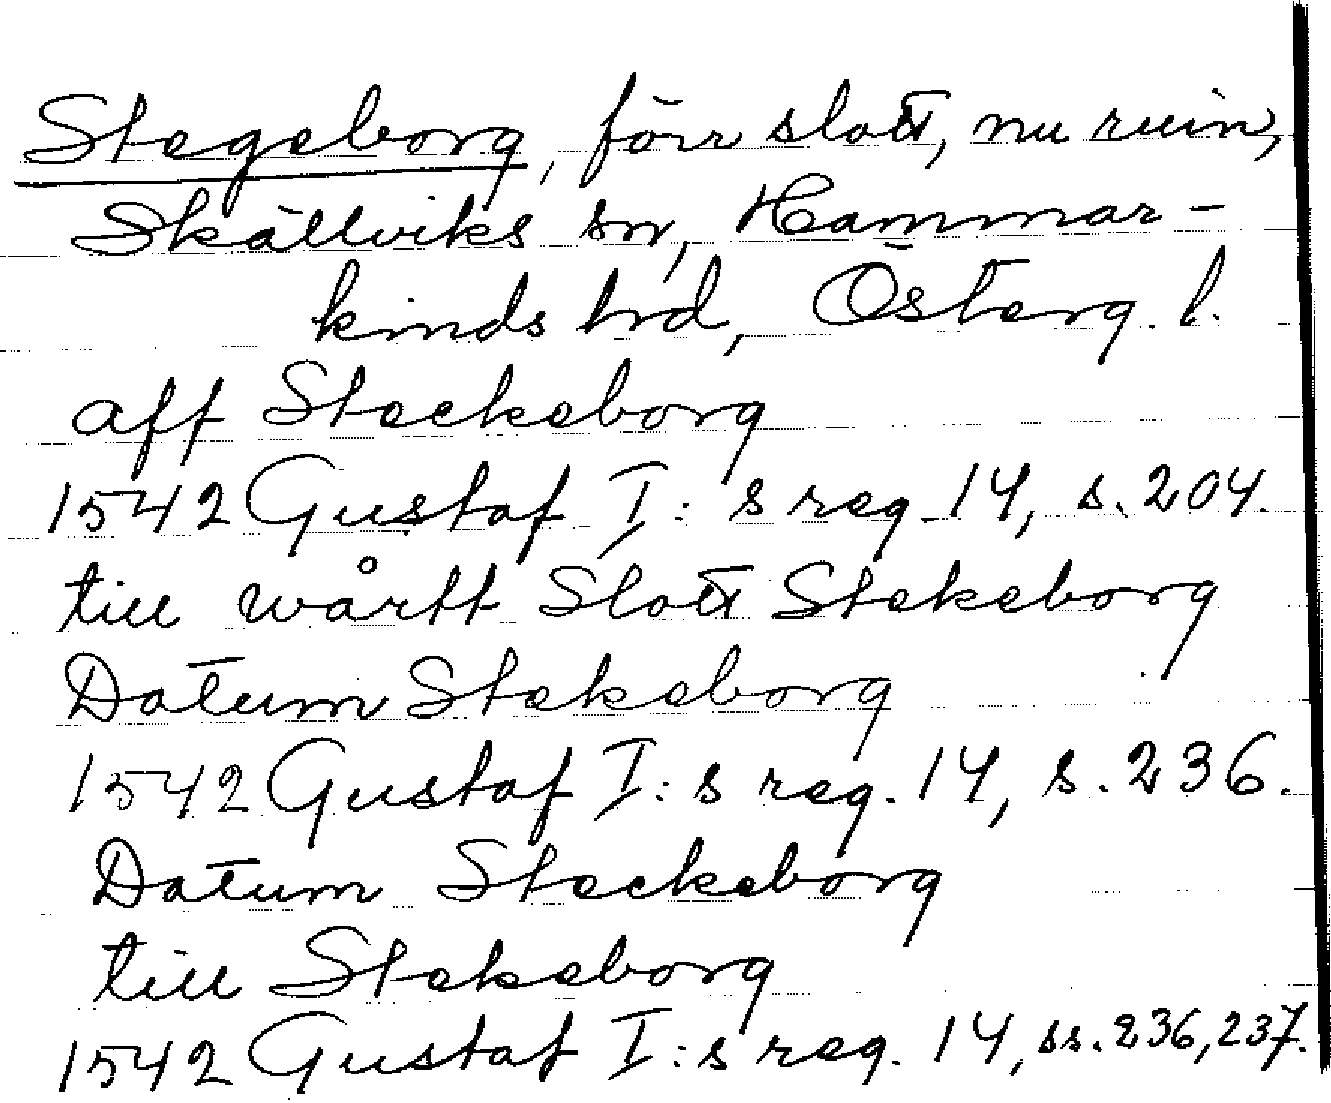 Stegeborg, förr slott, nu ruin,
Skällviks sn, Hammar-
kinds hrd, Österg. l.
aff Steckeborg
1542 Gustaf I:s reg. 14, s. 204.
till wårtt Slott Stekeborg
Datum Stekeborg
1542 Gustaf I:s reg. 14, s. 236.
Datum Steckeborg
till Stekeborg
1542 Gustaf I:s reg. 14, ss. 236, 237.